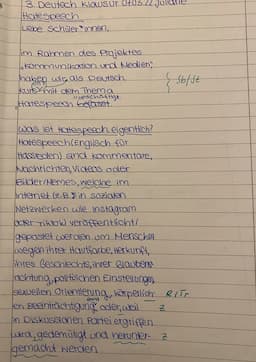 3. Deutsch Klausur 07.03.22 Juliane
Hatespeech
Liebe Schüler*innen,
im Rahmen des Projektes
"Kommunikation und Medien",
haben wir als Deutsch
kurs mit dem Thema
Hatespeech befasst.
Was ist Hatespeech eigentlich?
Hatespeech (Englisch für
Hassreden) sind Kommentare,
Nachrichten, Videos oder
Bilder/Memes, welche im
Internet (z.B. in sozialen
Netzwerken wie Instagram
oder TikTok veröffentlicht/
gepostet werden um Menschen
wegen ihrer Hautfarbe, Herkunft,
ihres Geschlechts, ihrer Glaubens
richtung, politischen Einstellungen,
sexuellen Orientierung, körperlich R
en Beeinträchtigung oder, weil Z
in Diskussionen Partei ergriffen
wird, gedemütigt und herunter- Z
gemacht werden